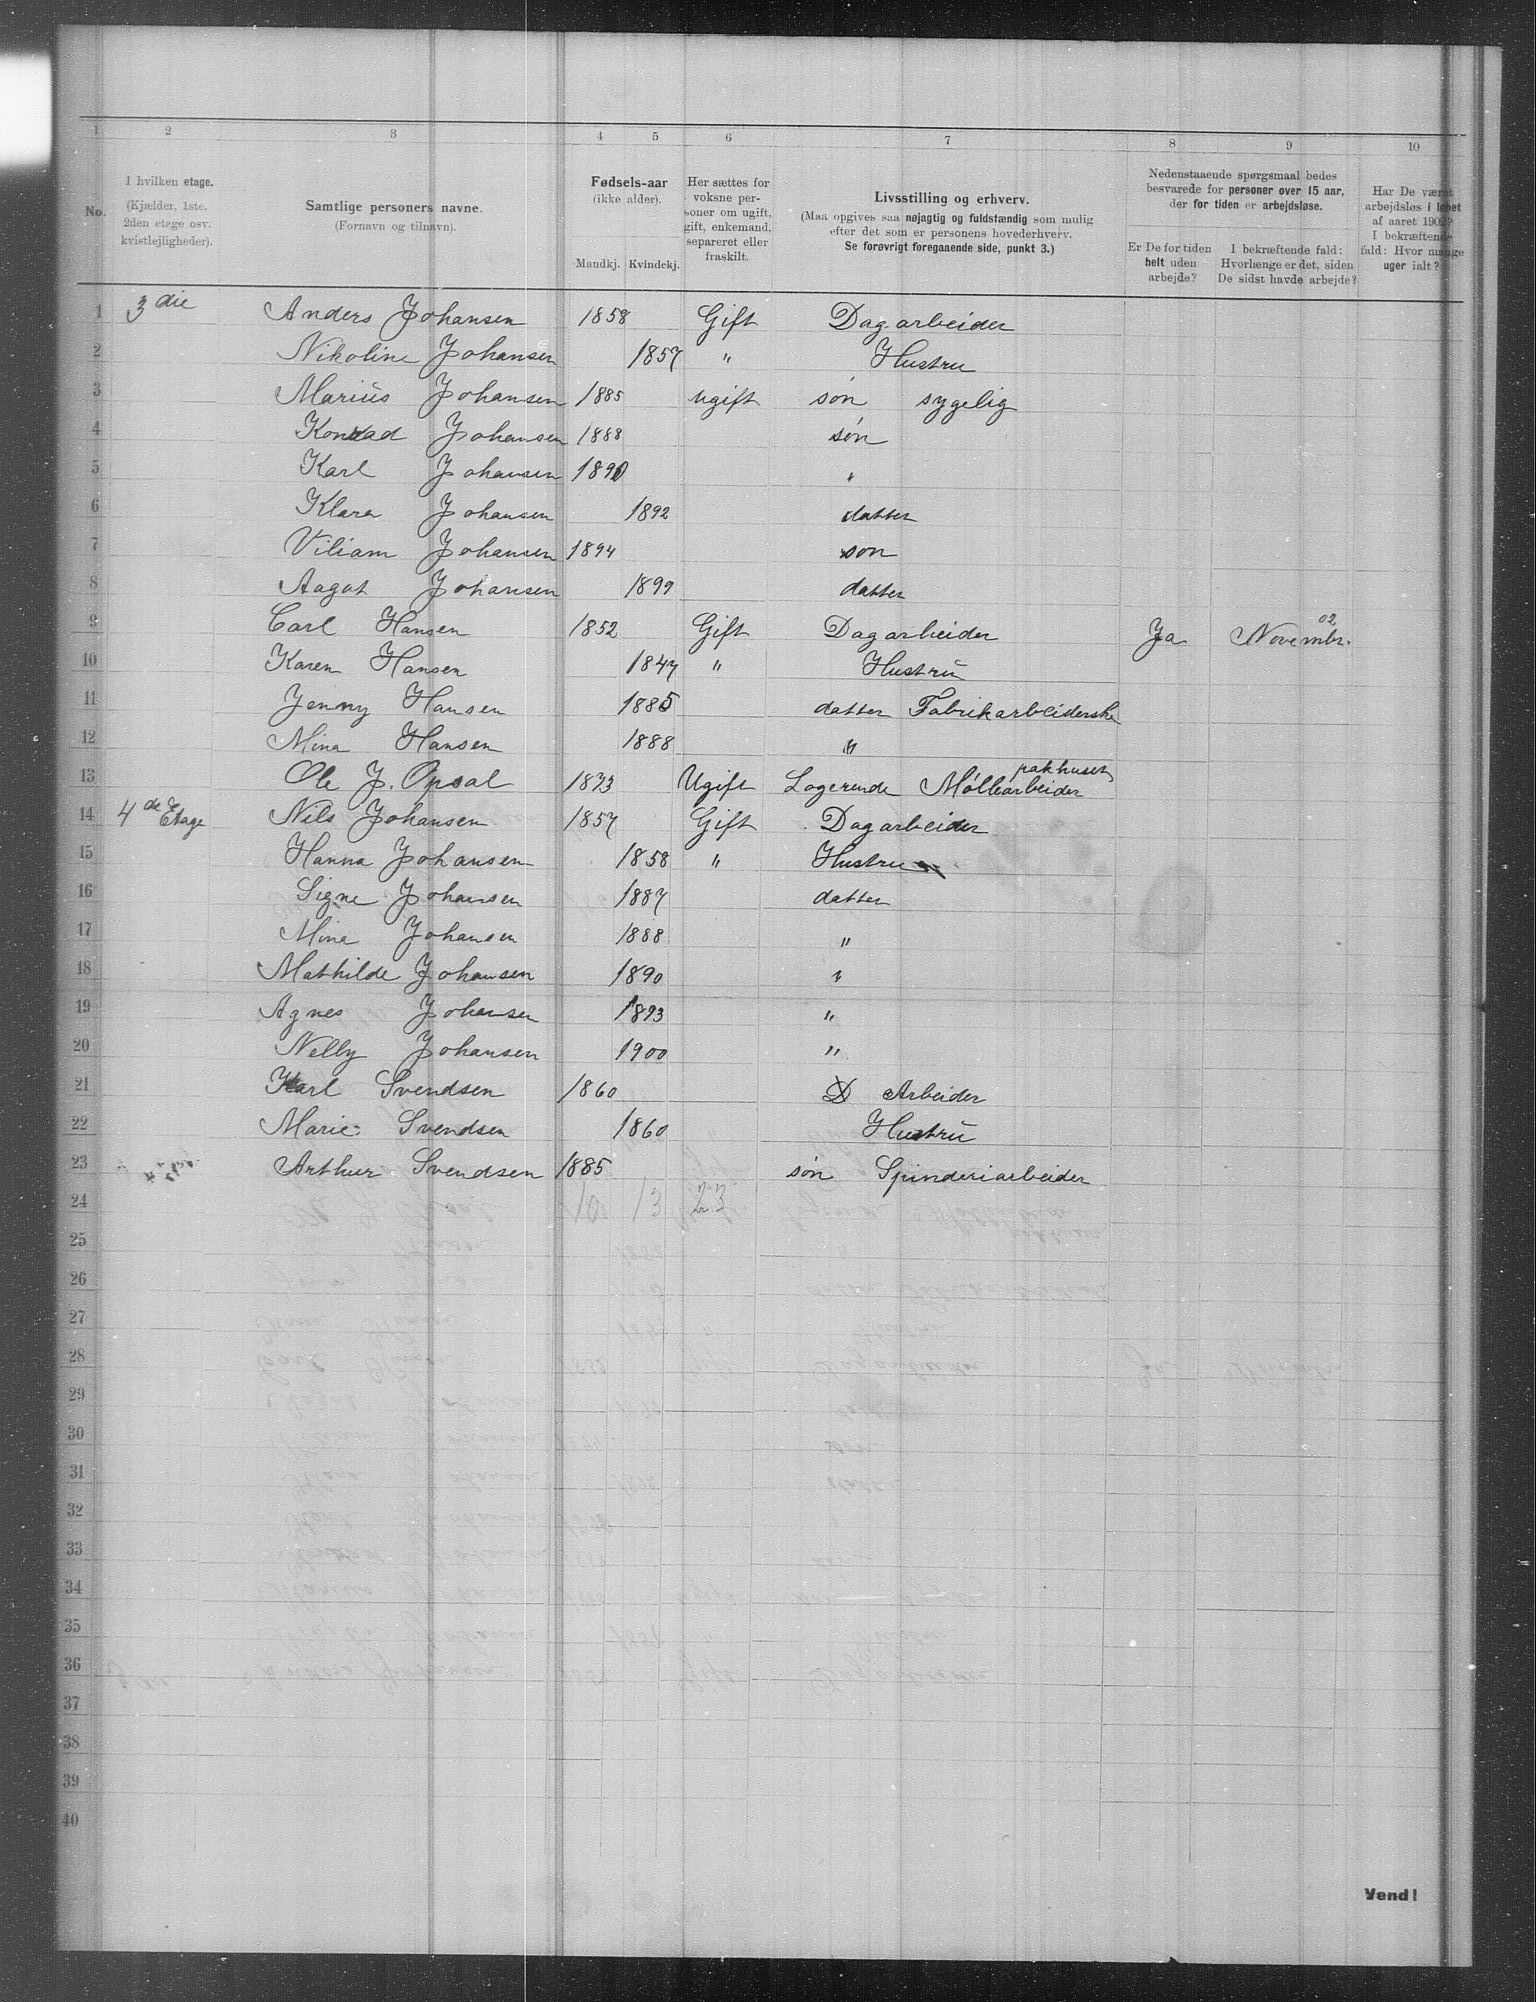 1 2 3 4 5 6 7 8 9 10
No.
I hvilken etage.
(Kjælder, 1ste.
2den etage osv.
kvistlejligheder).
Samtlige personers navne.
(Fornavn og tilnavn).
Fødsels-aar
(ikke alder).
Mandkj. Kvindekj.
Her sættes for
voksne per-
soner om ugift,
gift, enkemand,
separeret eller
fraskilt.
Livsstilling og erhverv.
(Maa opgives saa nøjagtig og fuldstændig som mulig
efter det som er personens hovederhverv.
Se forøvrigt foregaaende side, punkt 3.)
Nedenstaaende spørgsmaal bedes
besvarede for personer over 15 aar,
der for tiden er arbejdsløse.
Er De for tiden
helt uden
arbejde?
I bekræftende fald:
Hvorlænge er det, siden
De sidst havde arbejde?
Har De været
arbejdsløs i løbet
af aaret 1902?
I bekræftende
fald: Hvor mange
uger ialt?
1 3die Anders Johansen 1858 Gift Dagarbeider
2 Nikoline Johansen 1857 " Hustru
3 Marius Johansen 1885 ugift søn sygelig
4 Konrad Johansen 1888 søn
5 Karl Johansen 1890 "
6 Klara Johansen 1892 datter
7 Viliam Johansen 1894 søn
8 Aagot Johansen 1899 datter
9 Carl Hansen 1852 Gift Dagarbeider Ja Novembr. 02
10 Karen Hansen 1847 " Hustru
11 Jenny Hansen 1885 datter Fabrikarbeiderske
12 Mina Hansen 1888 "
13 Ole J. Opsal 1873 Ugift Logerende Møllearbeider pakhuset
14 4de Etage Nils Johansen 1857 Gift Dagarbeider
15 Hanna Johansen 1858 " Hustru
16 Signe Johansen 1887 datter
17 Mina Johansen 1888 "
18 Mathilde Johansen 1890 "
19 Agnes Johansen 1893 "
20 Nelly Johansen 1900 "
21 Karl Svendsen 1860 Arbeider
22 Marie Svendsen 1860 Hustru
23 Arthur Svendsen 1885 søn Spinderiarbeider
24 10 13 23
25
26
27
28
29
30
31
32
33
34
35
36
37
38
39
40
Vend!